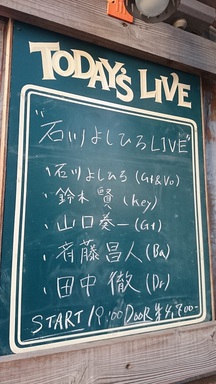 TODAY'S LIVE
"石川よしひろLIVE"
、石川よしひろ(Gt&Vo)
、鈴木 賢(Key)
、山口葵一(Gt)
、斉藤昌人(Ba)
、田中 徹(Dr)
START 19:00 DOOR ¥4,700-